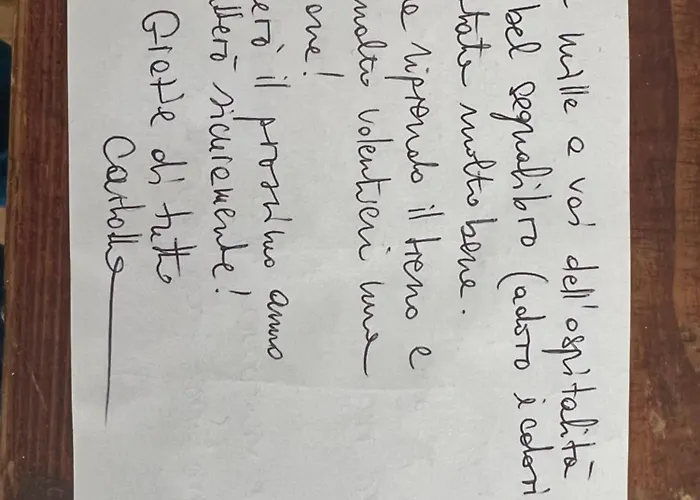 mille a voi dell'ospitalità
bel segnalibro (adoro i colori
molto bene.
riprendo il treno e
molto volentieri una
il prossimo anno
sicuramente!
Grazie di tutto
Carlotta